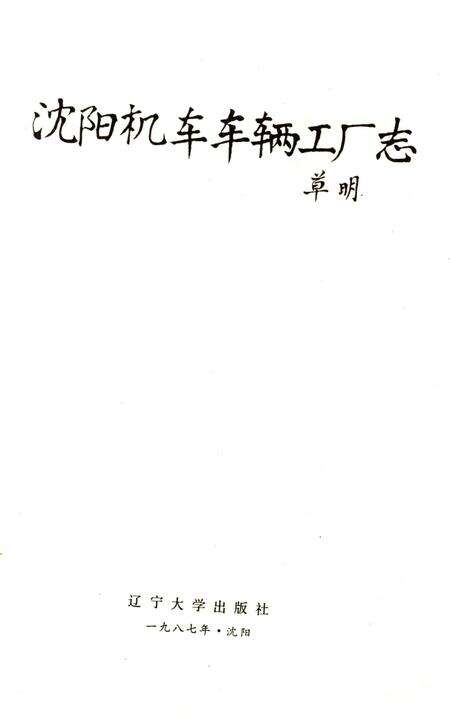 沈阳机车车辆工厂志
草明
辽宁大学出版社
一九八七年·沈阳